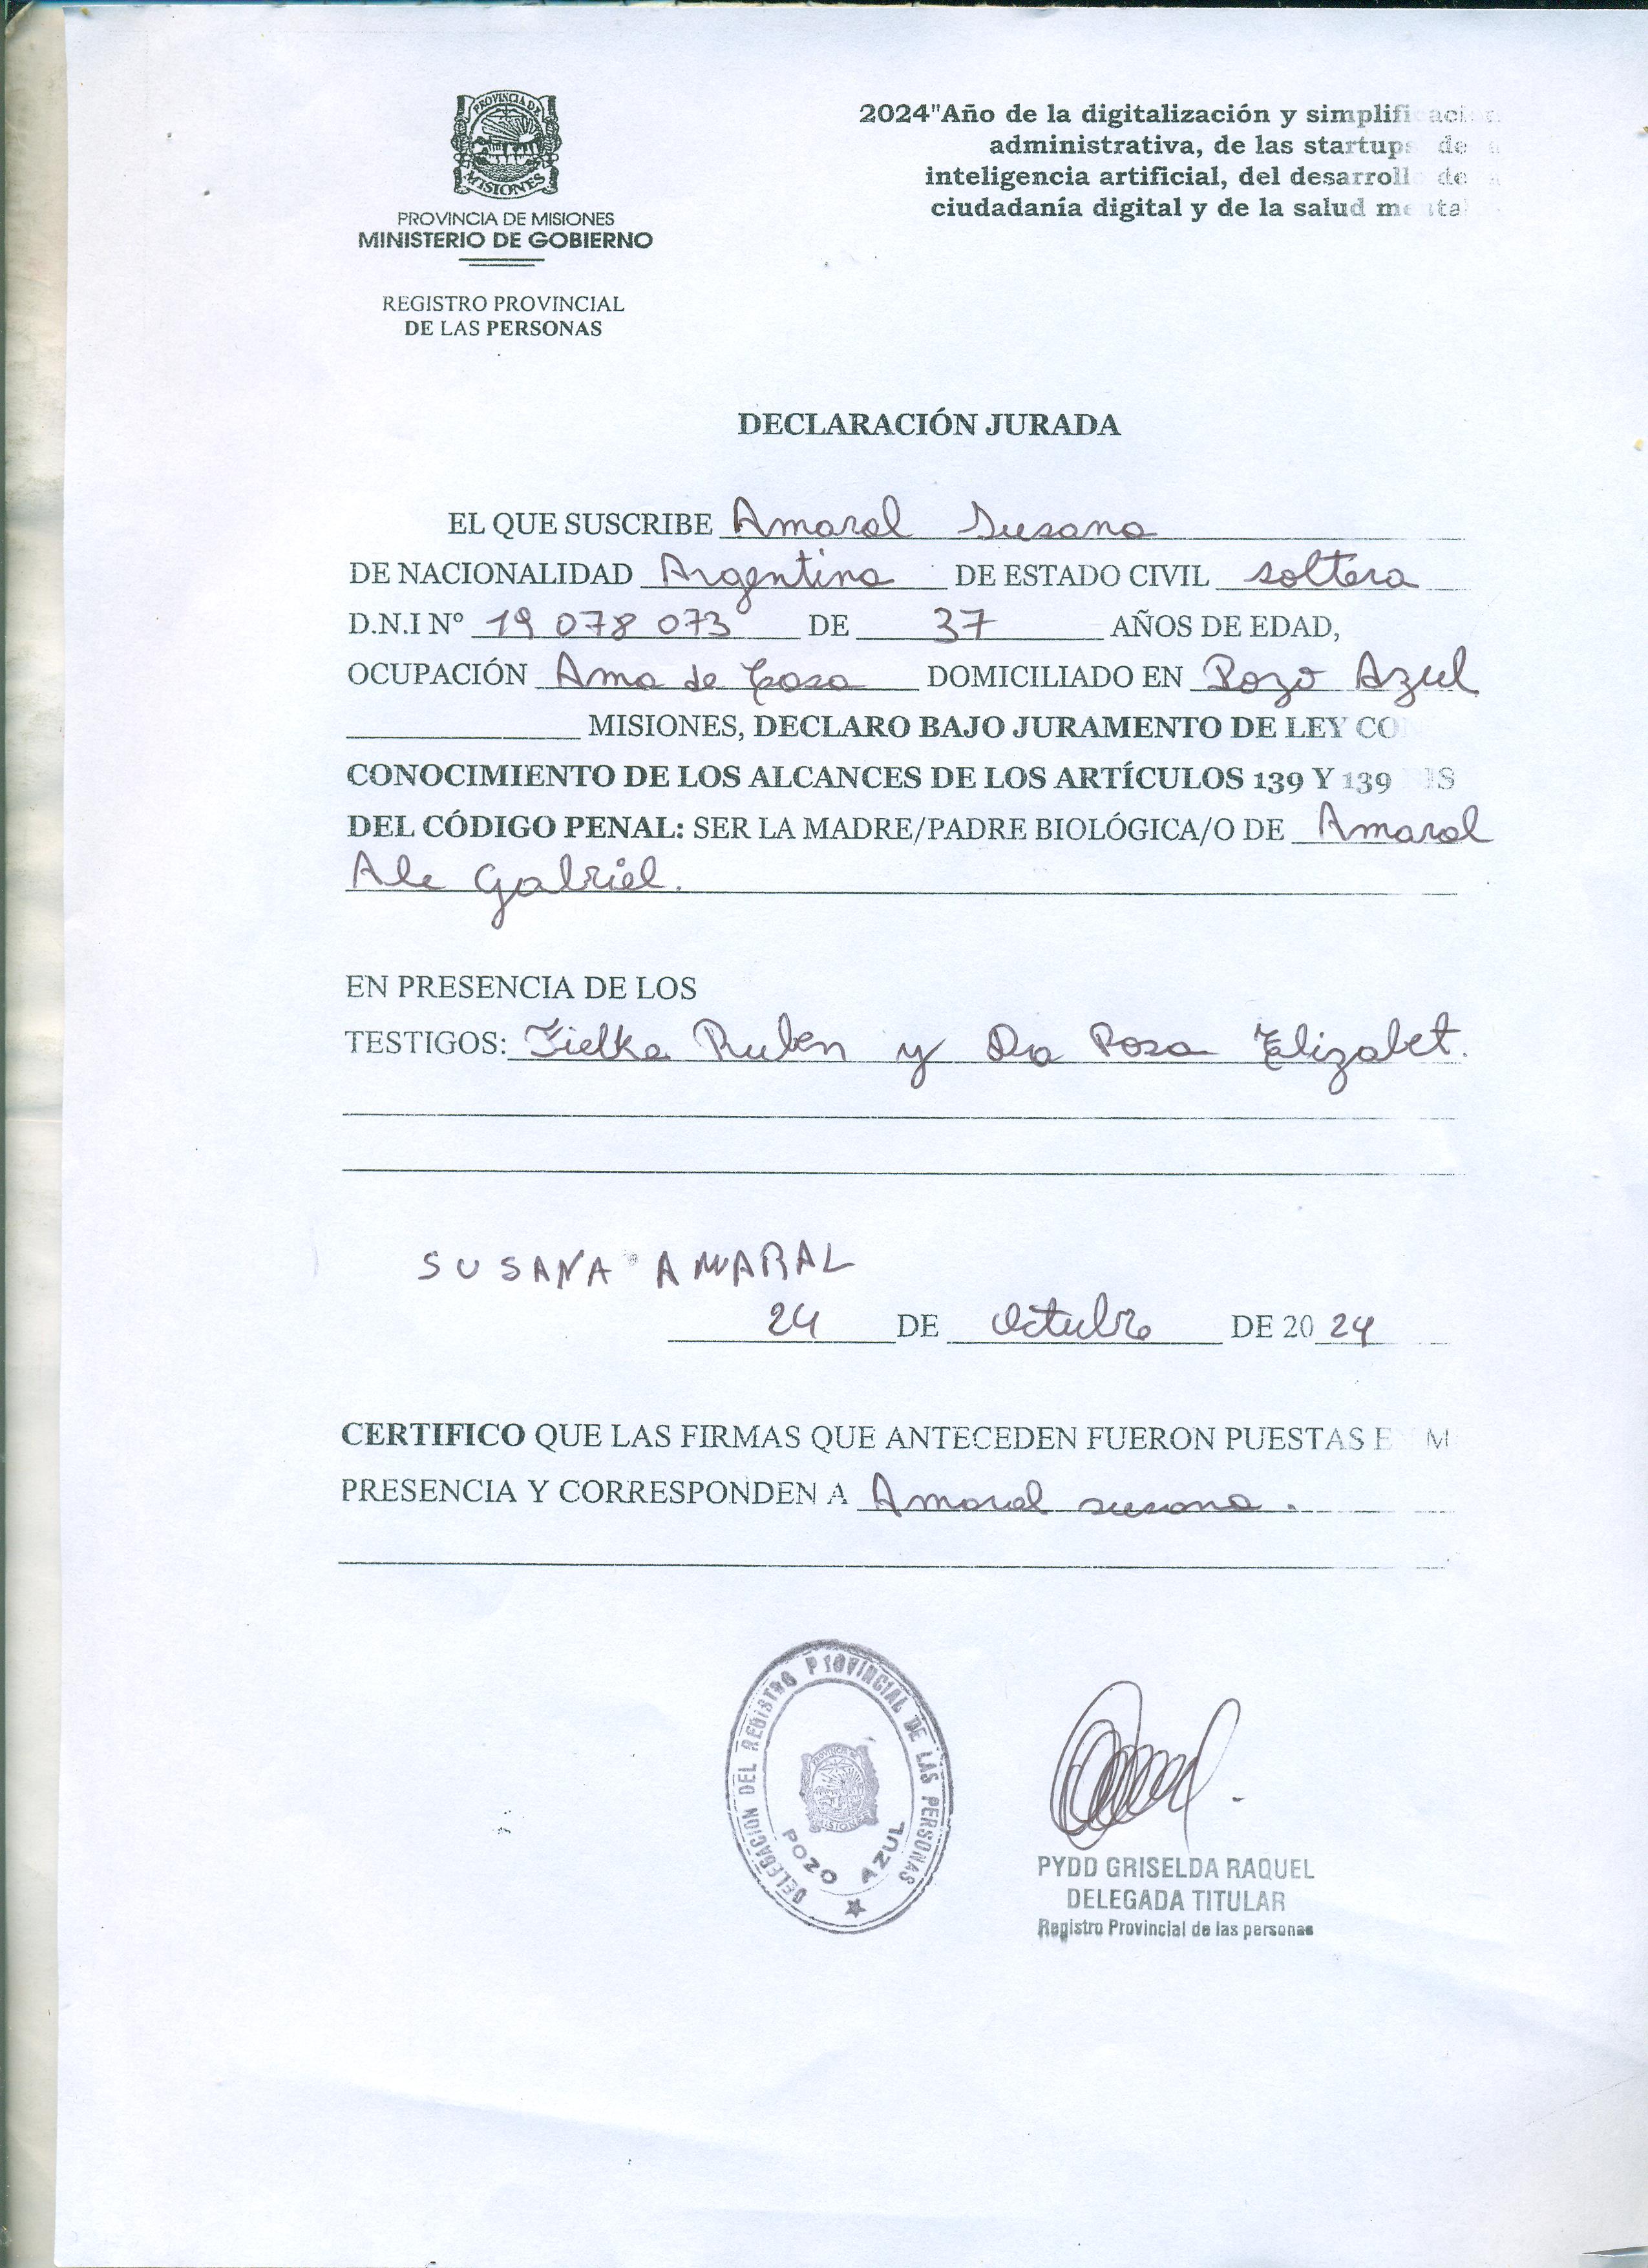 PROVINCIA DE
MISIONES
PROVINCIA DE MISIONES
MINISTERIO DE GOBIERNO
REGISTRO PROVINCIAL
DE LAS PERSONAS
2024"Año de la digitalización y simplificación
administrativa, de las startups de
inteligencia artificial, del desarrollo de
ciudadanía digital y de la salud mental
DECLARACIÓN JURADA
EL QUE SUSCRIBE Amaral Susana
DE NACIONALIDAD Argentina DE ESTADO CIVIL soltera
D.N.I Nº 19 078 073 DE 37 AÑOS DE EDAD,
OCUPACIÓN Ama de Casa DOMICILIADO EN Pozo Azul
MISIONES, DECLARO BAJO JURAMENTO DE LEY CO
CONOCIMIENTO DE LOS ALCANCES DE LOS ARTÍCULOS 139 Y 139 IS
DEL CÓDIGO PENAL: SER LA MADRE/PADRE BIOLÓGICA/O DE Amaral
Ale Gabriel.
EN PRESENCIA DE LOS
TESTIGOS: Ruben y Da Rosa Elizabet.
SUSANA AMARAL
24 DE Octubre DE 2024
CERTIFICO QUE LAS FIRMAS QUE ANTECEDEN FUERON PUESTAS E M
PRESENCIA Y CORRESPONDEN A Amaral susana.
DELEGACION DEL REGISTRO PROVINCIAL DE LAS PERSONAS
POZO AZUL
PYDD GRISELDA RAQUEL
DELEGADA TITULAR
Registro Provincial de las personas